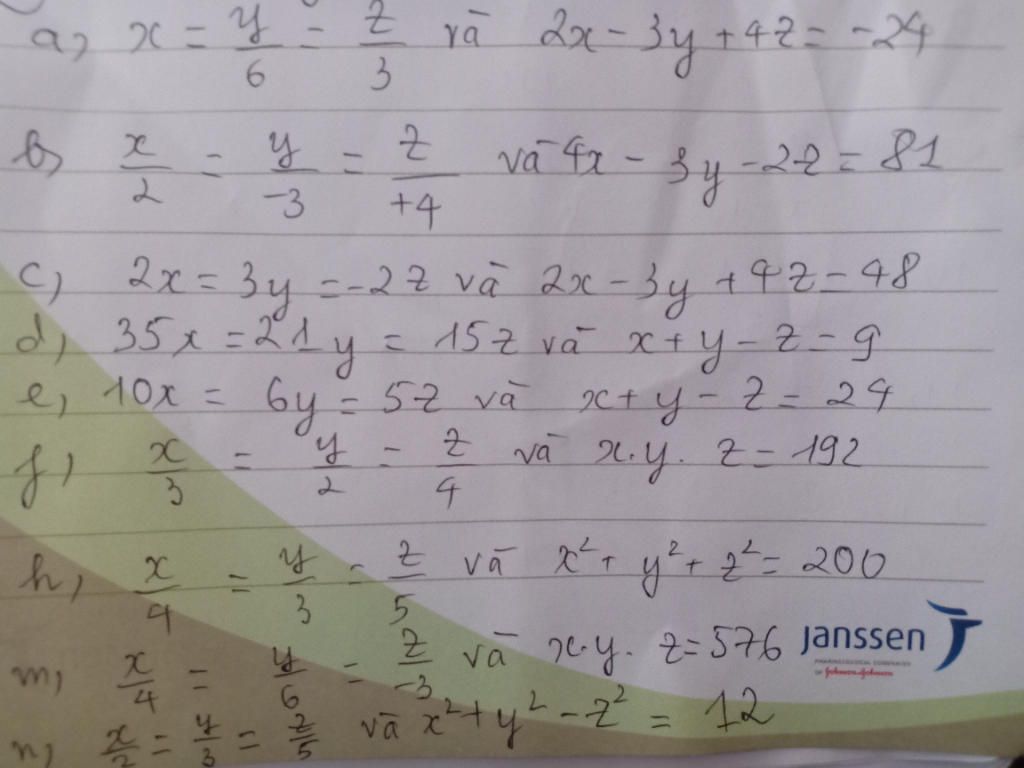 a, x = y/6 = z/3 và 2x - 3y + 4z = -24
b, x/2 = y/-3 = z/+4 và 4x - 3y - 2z = 81
c, 2x = 3y = -2z và 2x - 3y + 4z = 48
d, 35x = 21y = 15z và x + y - z = 9
e, 10x = 6y = 5z và x + y - z = 24
f, x/3 = y/2 = z/4 và x.y.z = 192
h, x/4 = y/3 = z/5 và x² + y² + z² = 200
m, x/4 = y/6 = z/-3 và x.y.z = 576
janssen
PHARMACEUTICAL COMPANIES
OF Johnson & Johnson
n, x/2 = y/3 = z/5 và x² + y² - z² = 12